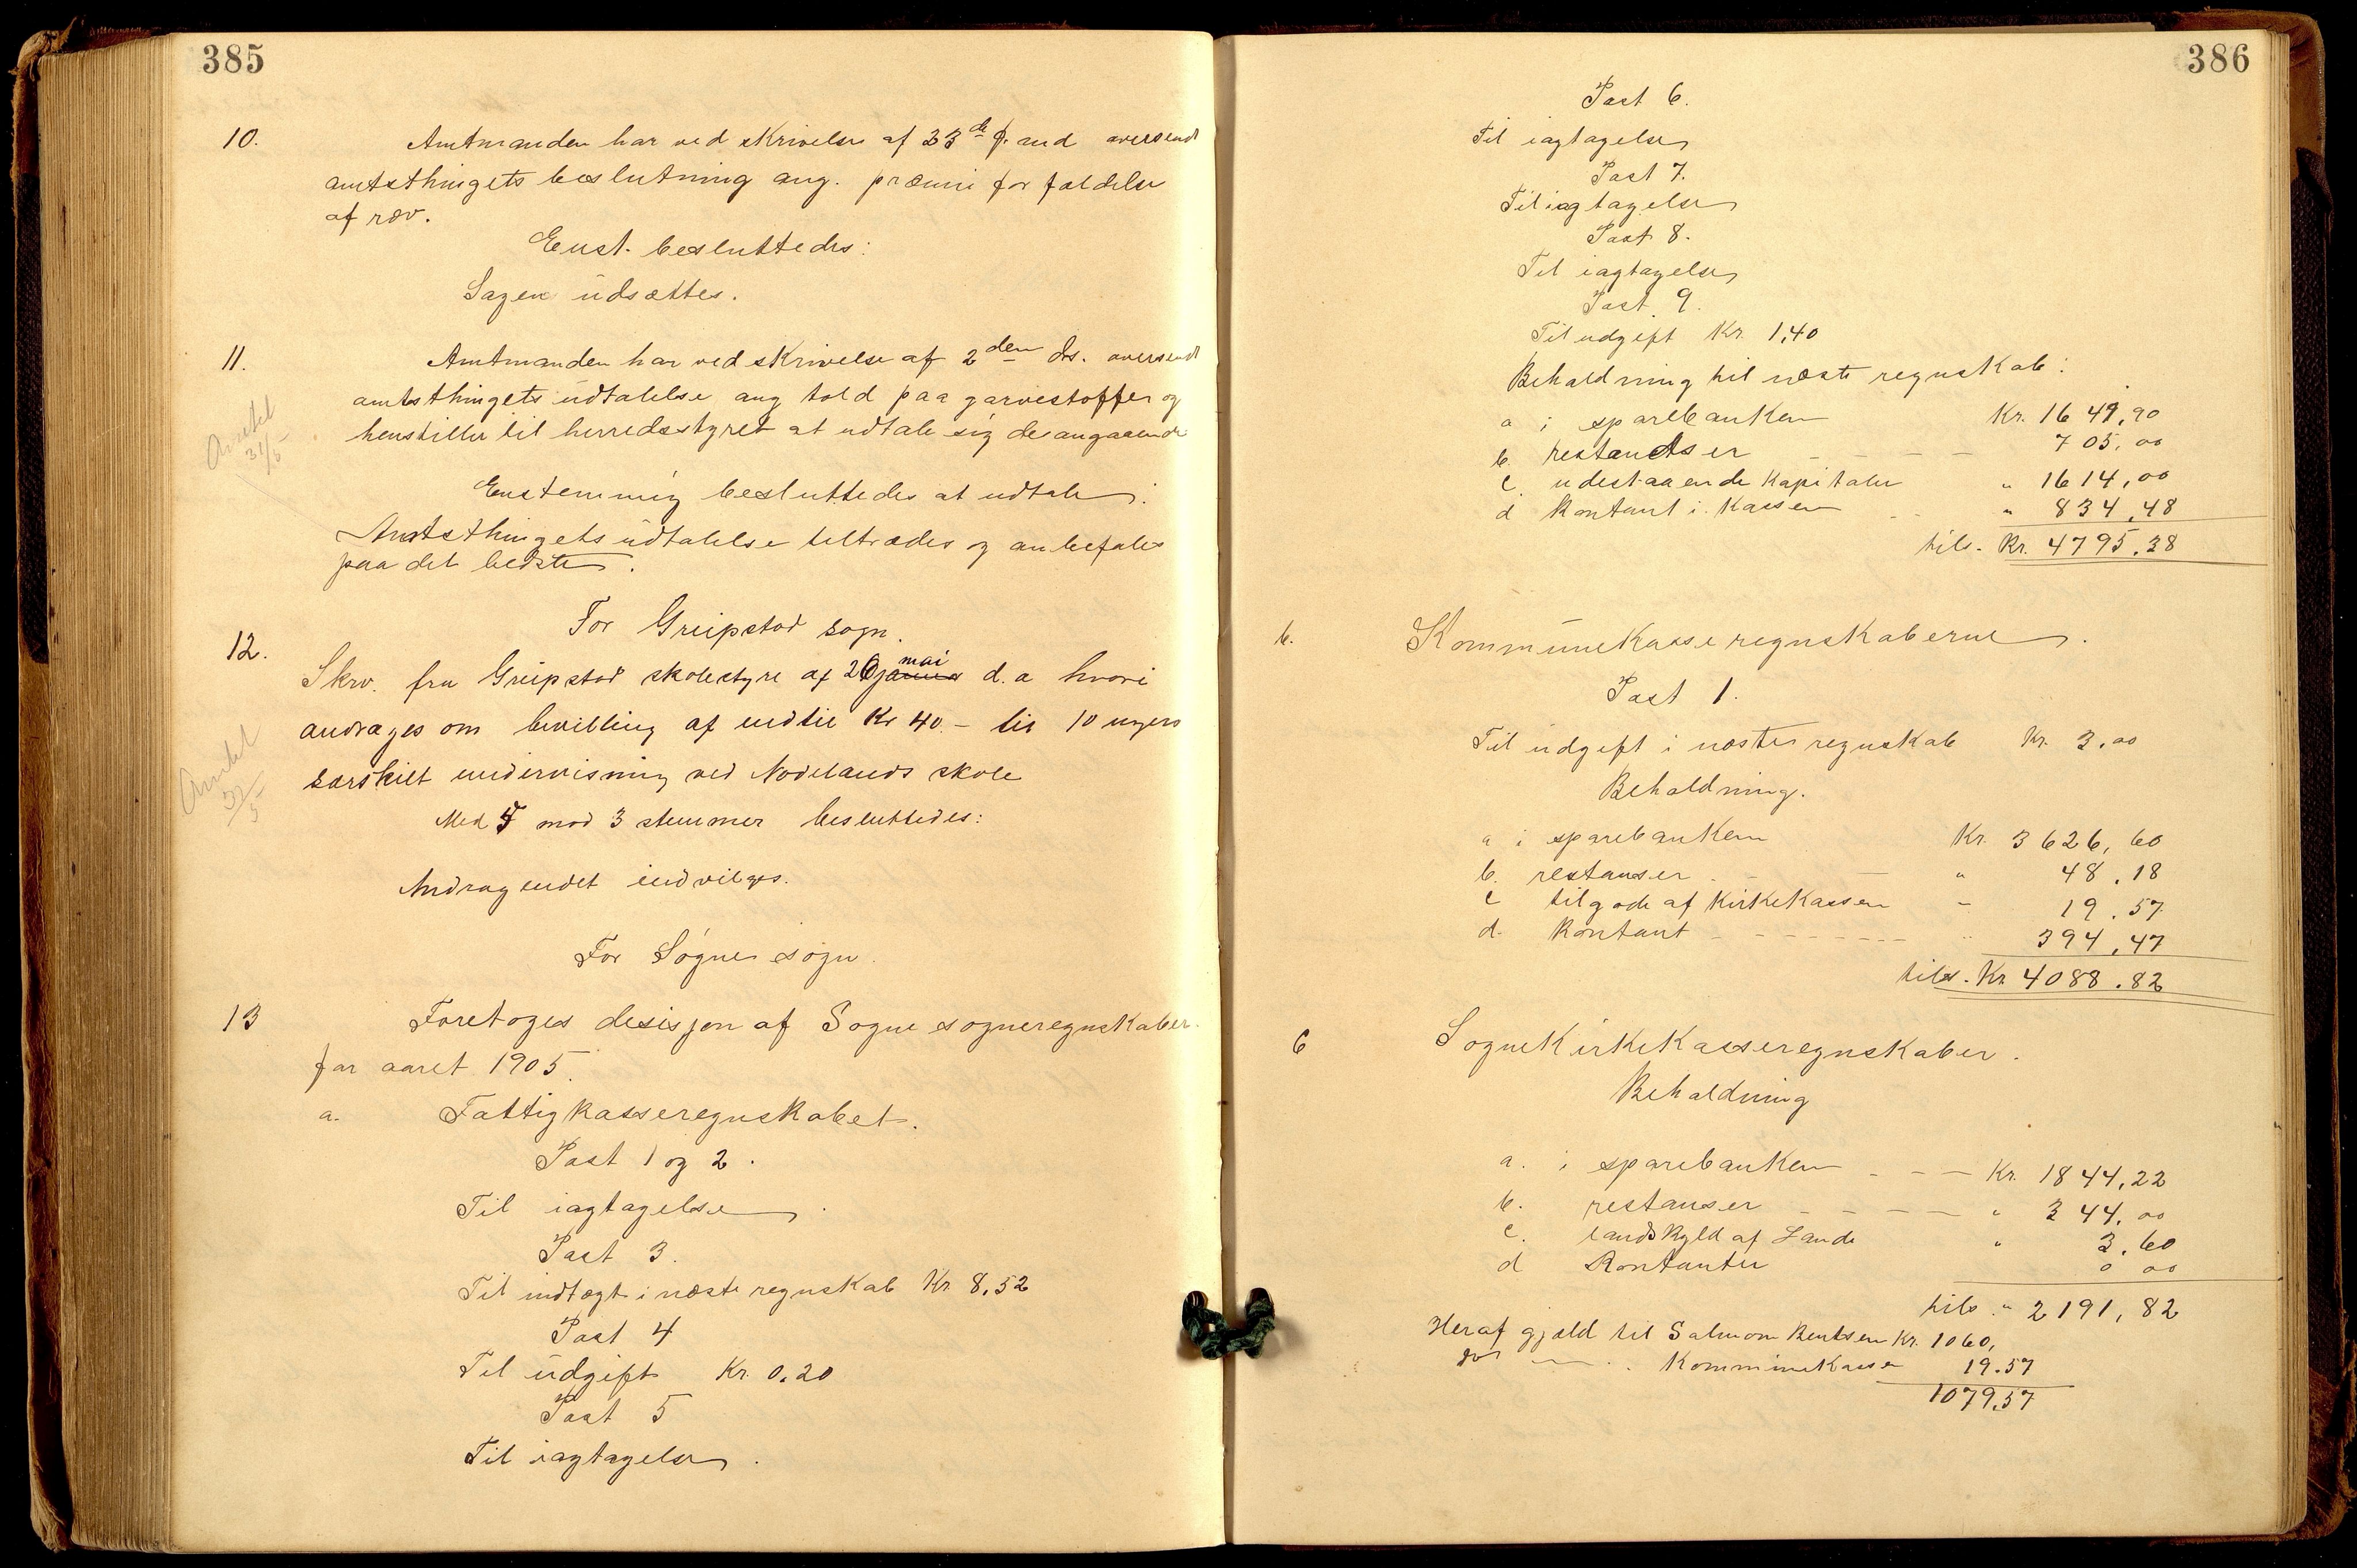 385
10. Amtmanden har ved skrivelse af 23de f. md oversendt
amtsthingets beslutning ang. præmi for fældelse
af ræv.
Enst. besluttedes:
Sagen udsættes.
11. Amtmanden har ved skrivelse af 2den ds. oversendt
amtsthingets udtalelse ang told paa garvestoffer og
henstiller til herredsstyret at udtale sig desangaaende
Anmeldt
31/5
Enstemmig besluttedes at udtale:
Amtsthingets udtalelse tiltrædes og anbefales
paa det bedste.
For Greipstad sogn.
12. Skrv. fra Greipstad skolestyre af 26 mai d.a hvori
andrages om bevilling af indtil Kr 40.- til 10 ugers
særskilt undervisning ved Nodelands skole
Med 5 mod 3 stemmer besluttedes:
Andragendet indvilges.
For Søgne sogn.
13 Foretoges desisjon af Søgne sogneregnskaber
for aaret 1905.
a. Fattigkasseregnskabet.
Post 1 og 2.
Til iagtagelse.
Post 3.
Til indtægt i næste regnskab Kr. 8,52
Post 4
Til udgift Kr. 0.20
Post 5
Til iagtagelse.
386
Post 6.
Til iagtagelse
Post 7.
Til iagtagelse
Post 8.
Til iagtagelse
Post 9.
Til udgift Kr. 1,40
Beholdning til næste regnskab:
a i sparebanken Kr. 1641,90
b. restantser 705,00
c. udestaaende Kapitaler " 1614,00
d Kontant i Kassen " 834,48
tils. Kr. 4795.38
b. Kommunekasseregnskaberne.
Post 1.
Til udgift i næste regnskab Kr. 3.00
Beholdning.
a i sparebanken Kr. 3626,60
b. restanser " 48.18
c tilgode af Kirkekassen " 19.57
d. Kontant 394,47
tils. Kr 4088.82
c Sognekirkekasseregnskaber.
Beholdning
a. i sparebanken Kr. 1844,22
b. restanser " 344.00
c. landskyld af Lande " 3.60
d Kontanter 0 00
tils. " 2191,82
Heraf gjæld til Salmon Bentsen Kr. 1060,
Kommunekasse 19.57
1079,57